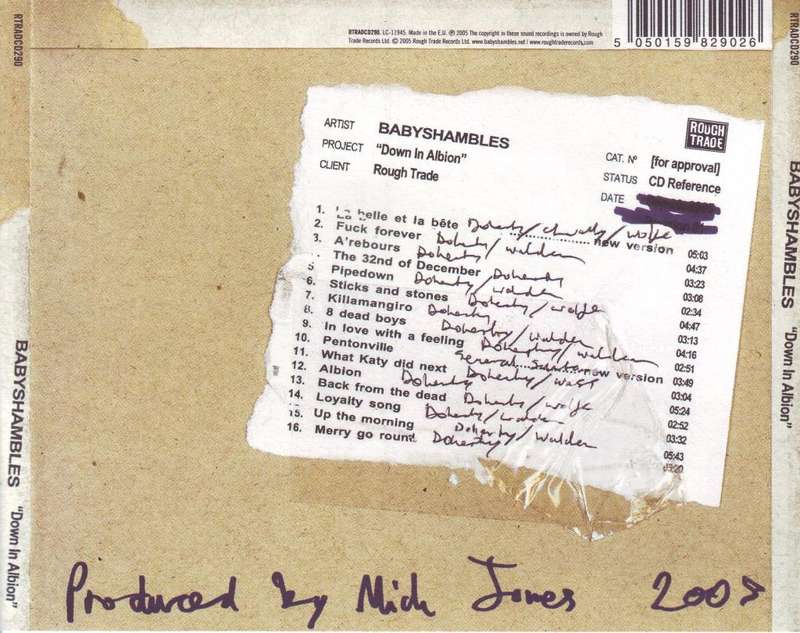 RTRADCD290. LC-11945. Made in the E.U. ℗ 2005 The copyright in these sound recordings is owned by Rough
Trade Records Ltd. © 2005 Rough Trade Records Ltd. www.babyshambles.net / www.roughtraderecords.com
5 050159 829026
RTRADCD290
BABYSHAMBLES "Down In Albion"
RTRADCD290
BABYSHAMBLES "Down In Albion"
ROUGH
TRADE
ARTIST BABYSHAMBLES
PROJECT "Down In Albion"
CLIENT Rough Trade
CAT. Nº [for approval]
STATUS CD Reference
DATE
1. La belle et la bête Doherty/ /Wolfe 05:03
2. Fuck forever Doherty/Walden new version 04:37
3. A'rebours Doherty/Walden 03:23
4. The 32nd of December Doherty 03:08
5 Pipedown Doherty/Walden 02:34
6. Sticks and stones Doherty/Wolfe 04:47
7. Killamangiro Doherty 03:13
8. 8 dead boys Doherty/Walden 04:16
9. In love with a feeling Doherty/Walden 02:51
10. Pentonville General new version 03:49
11. What Katy did next Doherty/ 03:04
12. Albion Doherty 05:24
13. Back from the dead Doherty/Wolfe 02:52
14. Loyalty song Doherty/Walden 03:32
15. Up the morning Doherty/Walden 05:43
16. Merry go round Doherty 03:20
Produced by Mick Jones 2005